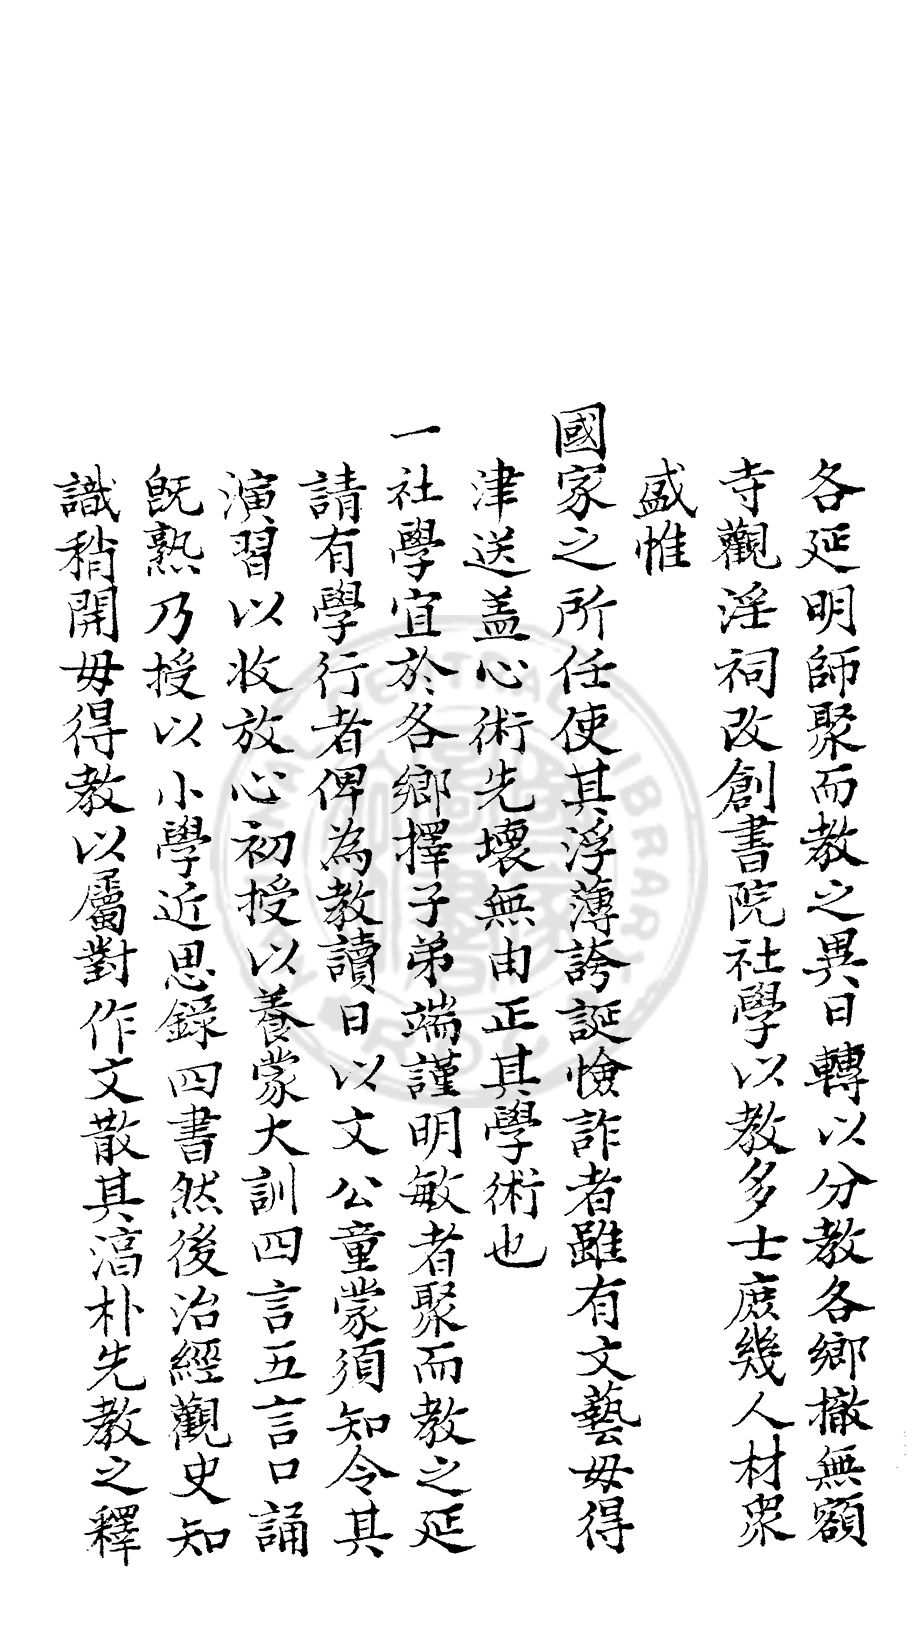 各延明師聚而教之異日轉以分教各鄉撤無額
寺觀淫祠改創書院社學以教多士庶幾人材眾
盛惟
國家之所任使其浮薄誇誕憸詐者雖有文藝毋得
津送盖心術先壞無由正其學術也
一社學宜於各鄉擇子弟端謹明敏者聚而教之延
請有學行者俾為教讀日以文公童蒙須知令其
演習以收放心初授以養蒙大訓四言五言口誦
既熟乃授以小學近思錄四書然後治經觀史知
識稍開毋得教以屬對作文散其湻朴先教之釋